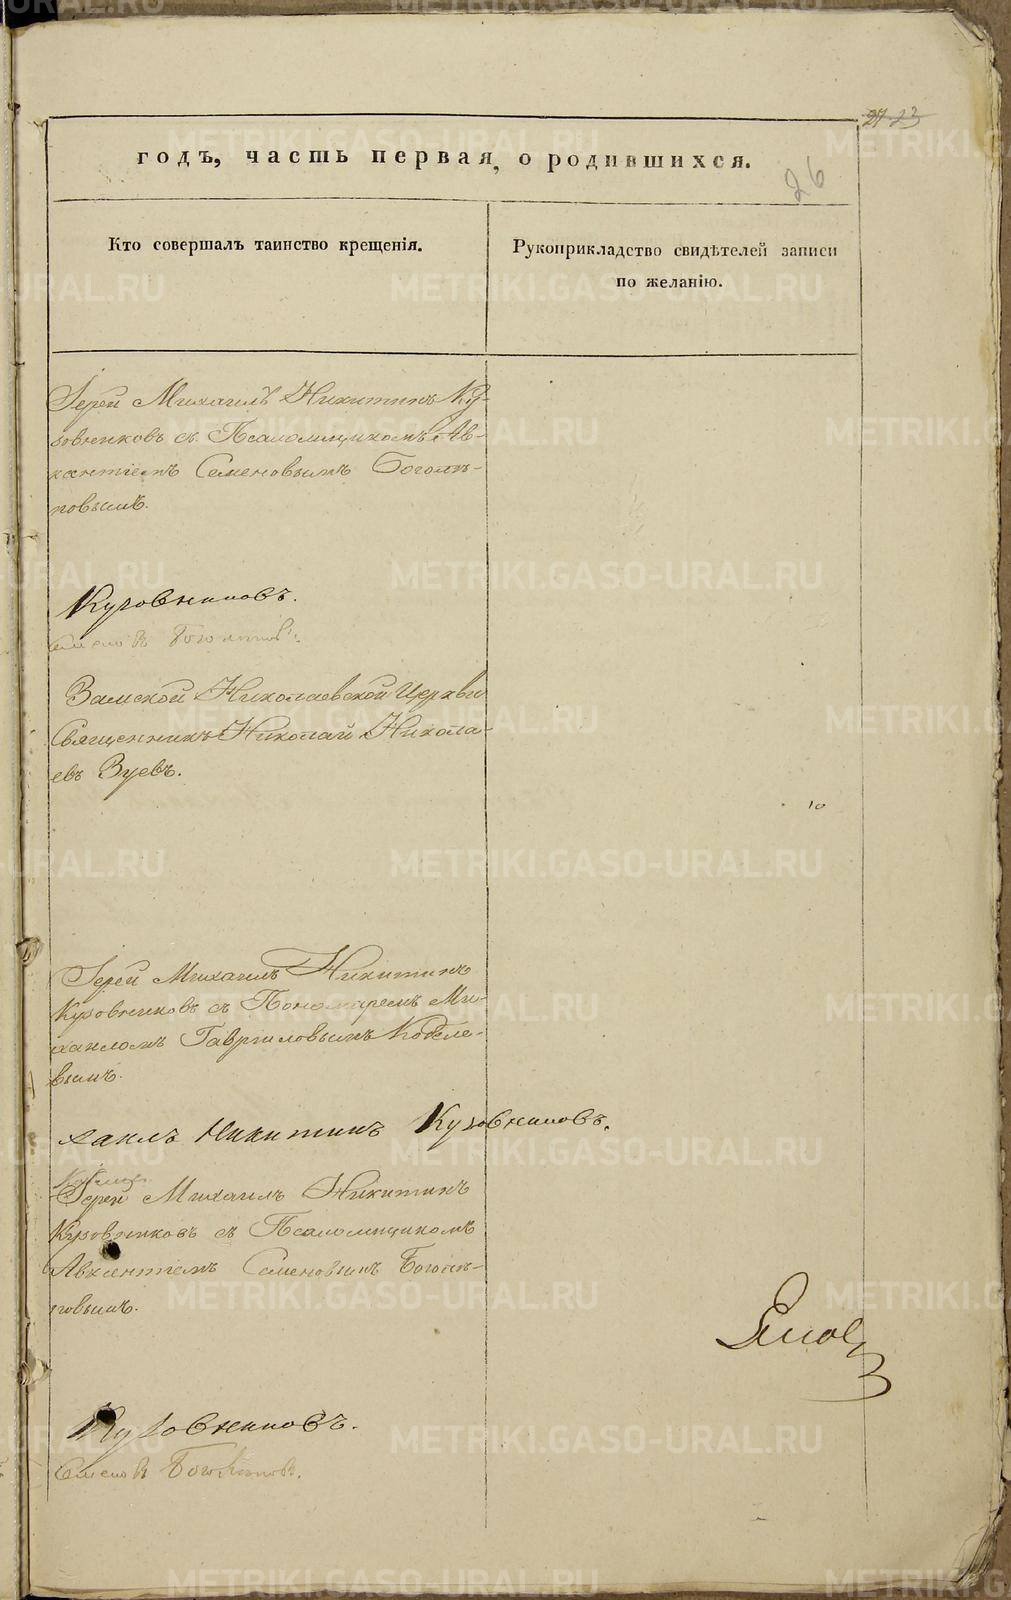 27 23
годъ, часть первая, о родившихся.
26
Кто совершалъ таинство крещенія.
Рукоприкладство свидѣтелей записи
по желанію.
Іерей Михаилъ Никитинъ Ку-
зовниковъ съ Псаломщикомъ Ав-
ксентіемъ Семеновымъ Боголѣ-
повымъ.
Кузовниковъ.
Боголѣповъ.
Замской Николаевской Церкви
Священникъ Николай Никола-
евъ Зуевъ.
Іерей Михаилъ Никитинъ
Кузовниковъ съ Пономаремъ Ми-
хаиломъ Гавриловымъ Кобеле-
вымъ.
хаилъ Никитинъ Кузовниковъ.
Іерей Михаилъ Никитинъ
Кузовниковъ съ Псаломщикомъ
Авксентіемъ Семеновымъ Боголѣ-
повымъ.
Кузовниковъ.
Боголѣповъ.
METRIKI.GASO-URAL.RU